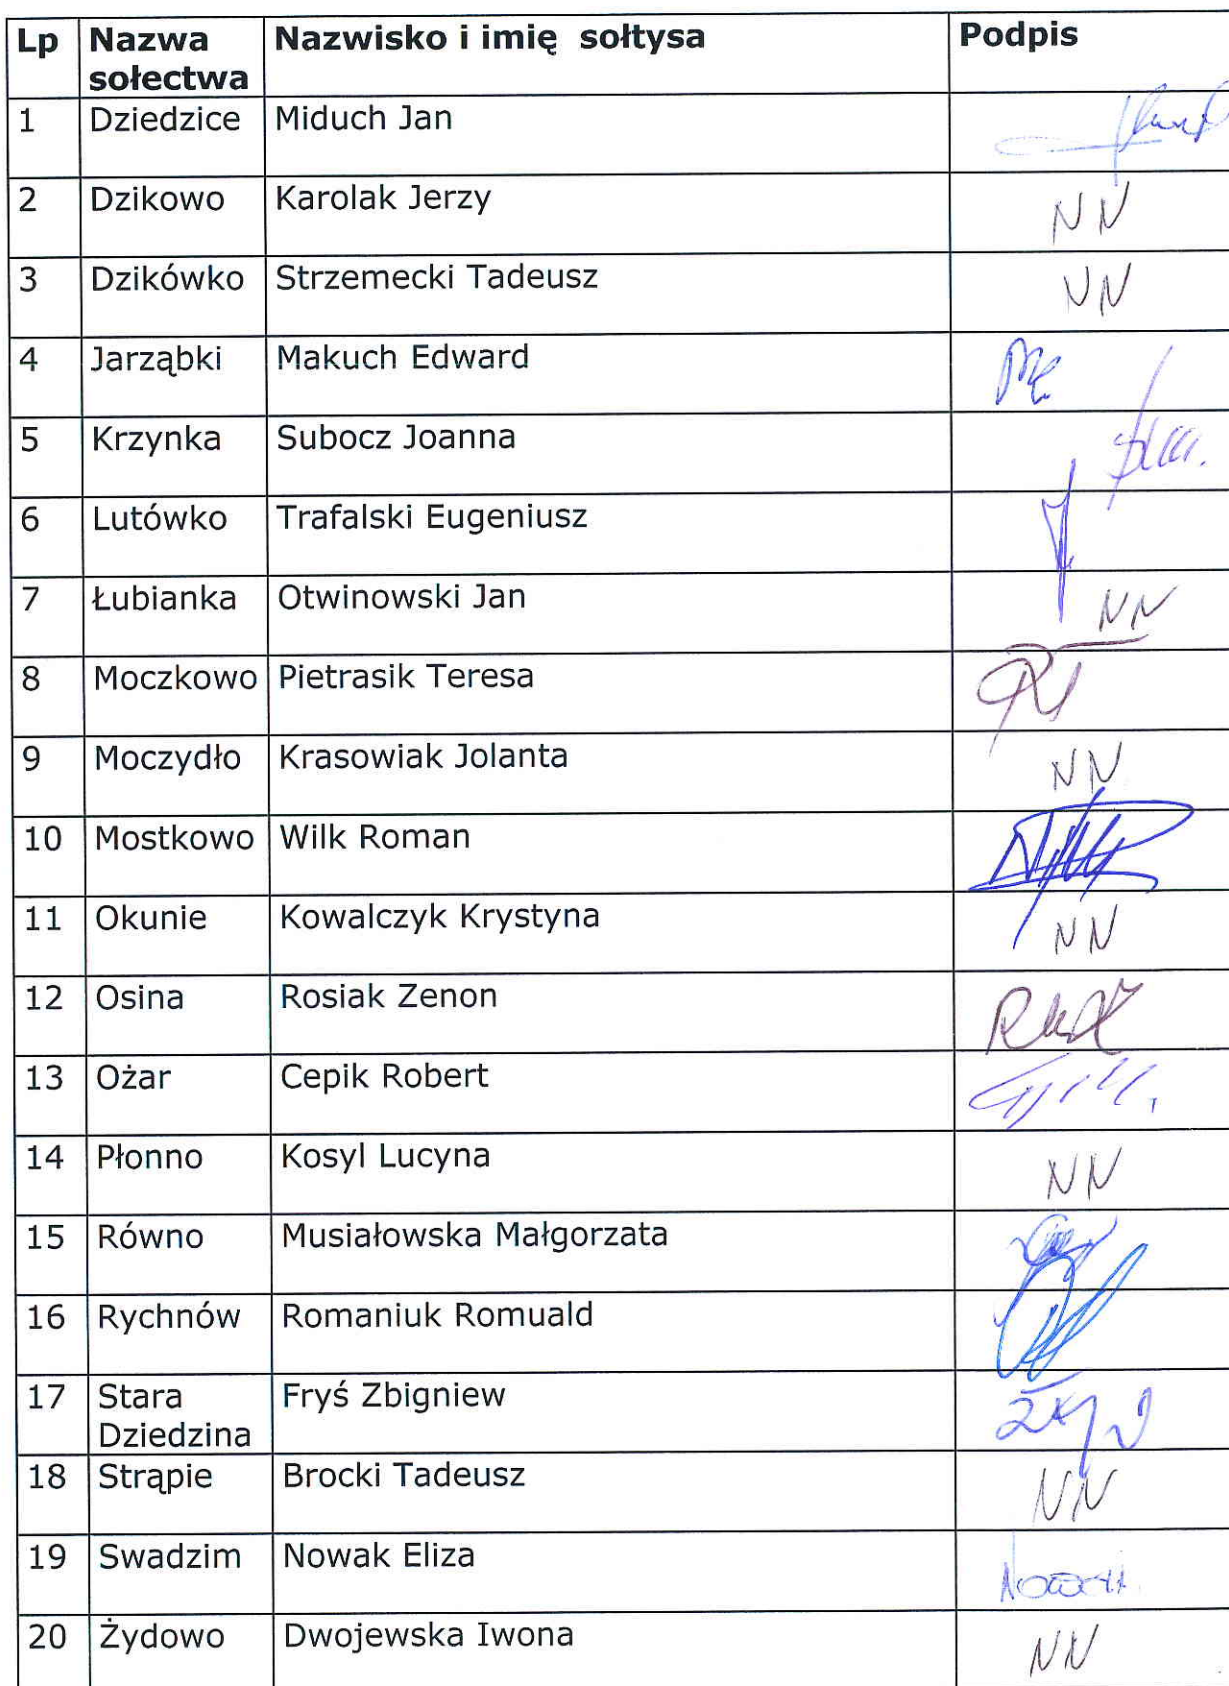 Lp Nazwa sołectwa Nazwisko i imię sołtysa Podpis
1 Dziedzice Miduch Jan
2 Dzikowo Karolak Jerzy NN
3 Dzikówko Strzemecki Tadeusz NN
4 Jarząbki Makuch Edward
5 Krzynka Subocz Joanna
6 Lutówko Trafalski Eugeniusz
7 Łubianka Otwinowski Jan NN
8 Moczkowo Pietrasik Teresa
9 Moczydło Krasowiak Jolanta NN
10 Mostkowo Wilk Roman
11 Okunie Kowalczyk Krystyna NN
12 Osina Rosiak Zenon
13 Ożar Cepik Robert
14 Płonno Kosyl Lucyna NN
15 Równo Musiałowska Małgorzata
16 Rychnów Romaniuk Romuald
17 Stara Dziedzina Fryś Zbigniew
18 Strąpie Brocki Tadeusz NN
19 Swadzim Nowak Eliza
20 Żydowo Dwojewska Iwona NN